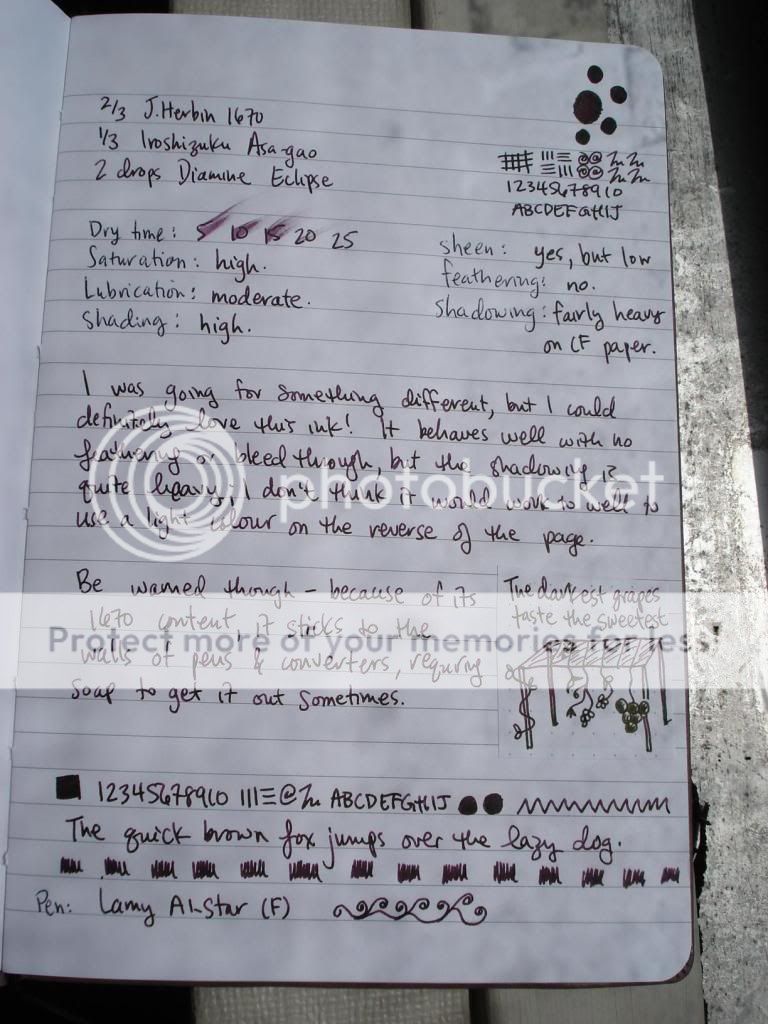 2/3 J.Herbin 1670
1/3 Iroshizuku Asa-gao
2 drops Diamine Eclipse
12345678910
ABCDEFGHIJ
Dry time: 5 10 15 20 25
Saturation: high.
Lubrication: moderate.
Shading: high.
sheen: yes, but low
feathering: no.
Shadowing: fairly heavy
on CF paper.
I was going for something different, but I could
definitely love this ink! It behaves well with no
feathering or bleed through, but the shadowing is
quite heavy; I don't think it would work to well to
use a light colour on the reverse of the page.
photobucket
Be warned though - because of its
1670 content, it sticks to the
walls of pens & converters, requring
soap to get it out sometimes.
The darkest grapes
taste the sweetest
Protect more of your memories for less!
12345678910 |||≡@ ABCDEFGHIJ
The quick brown fox jumps over the lazy dog.
Pen: Lamy Al-Star (F)